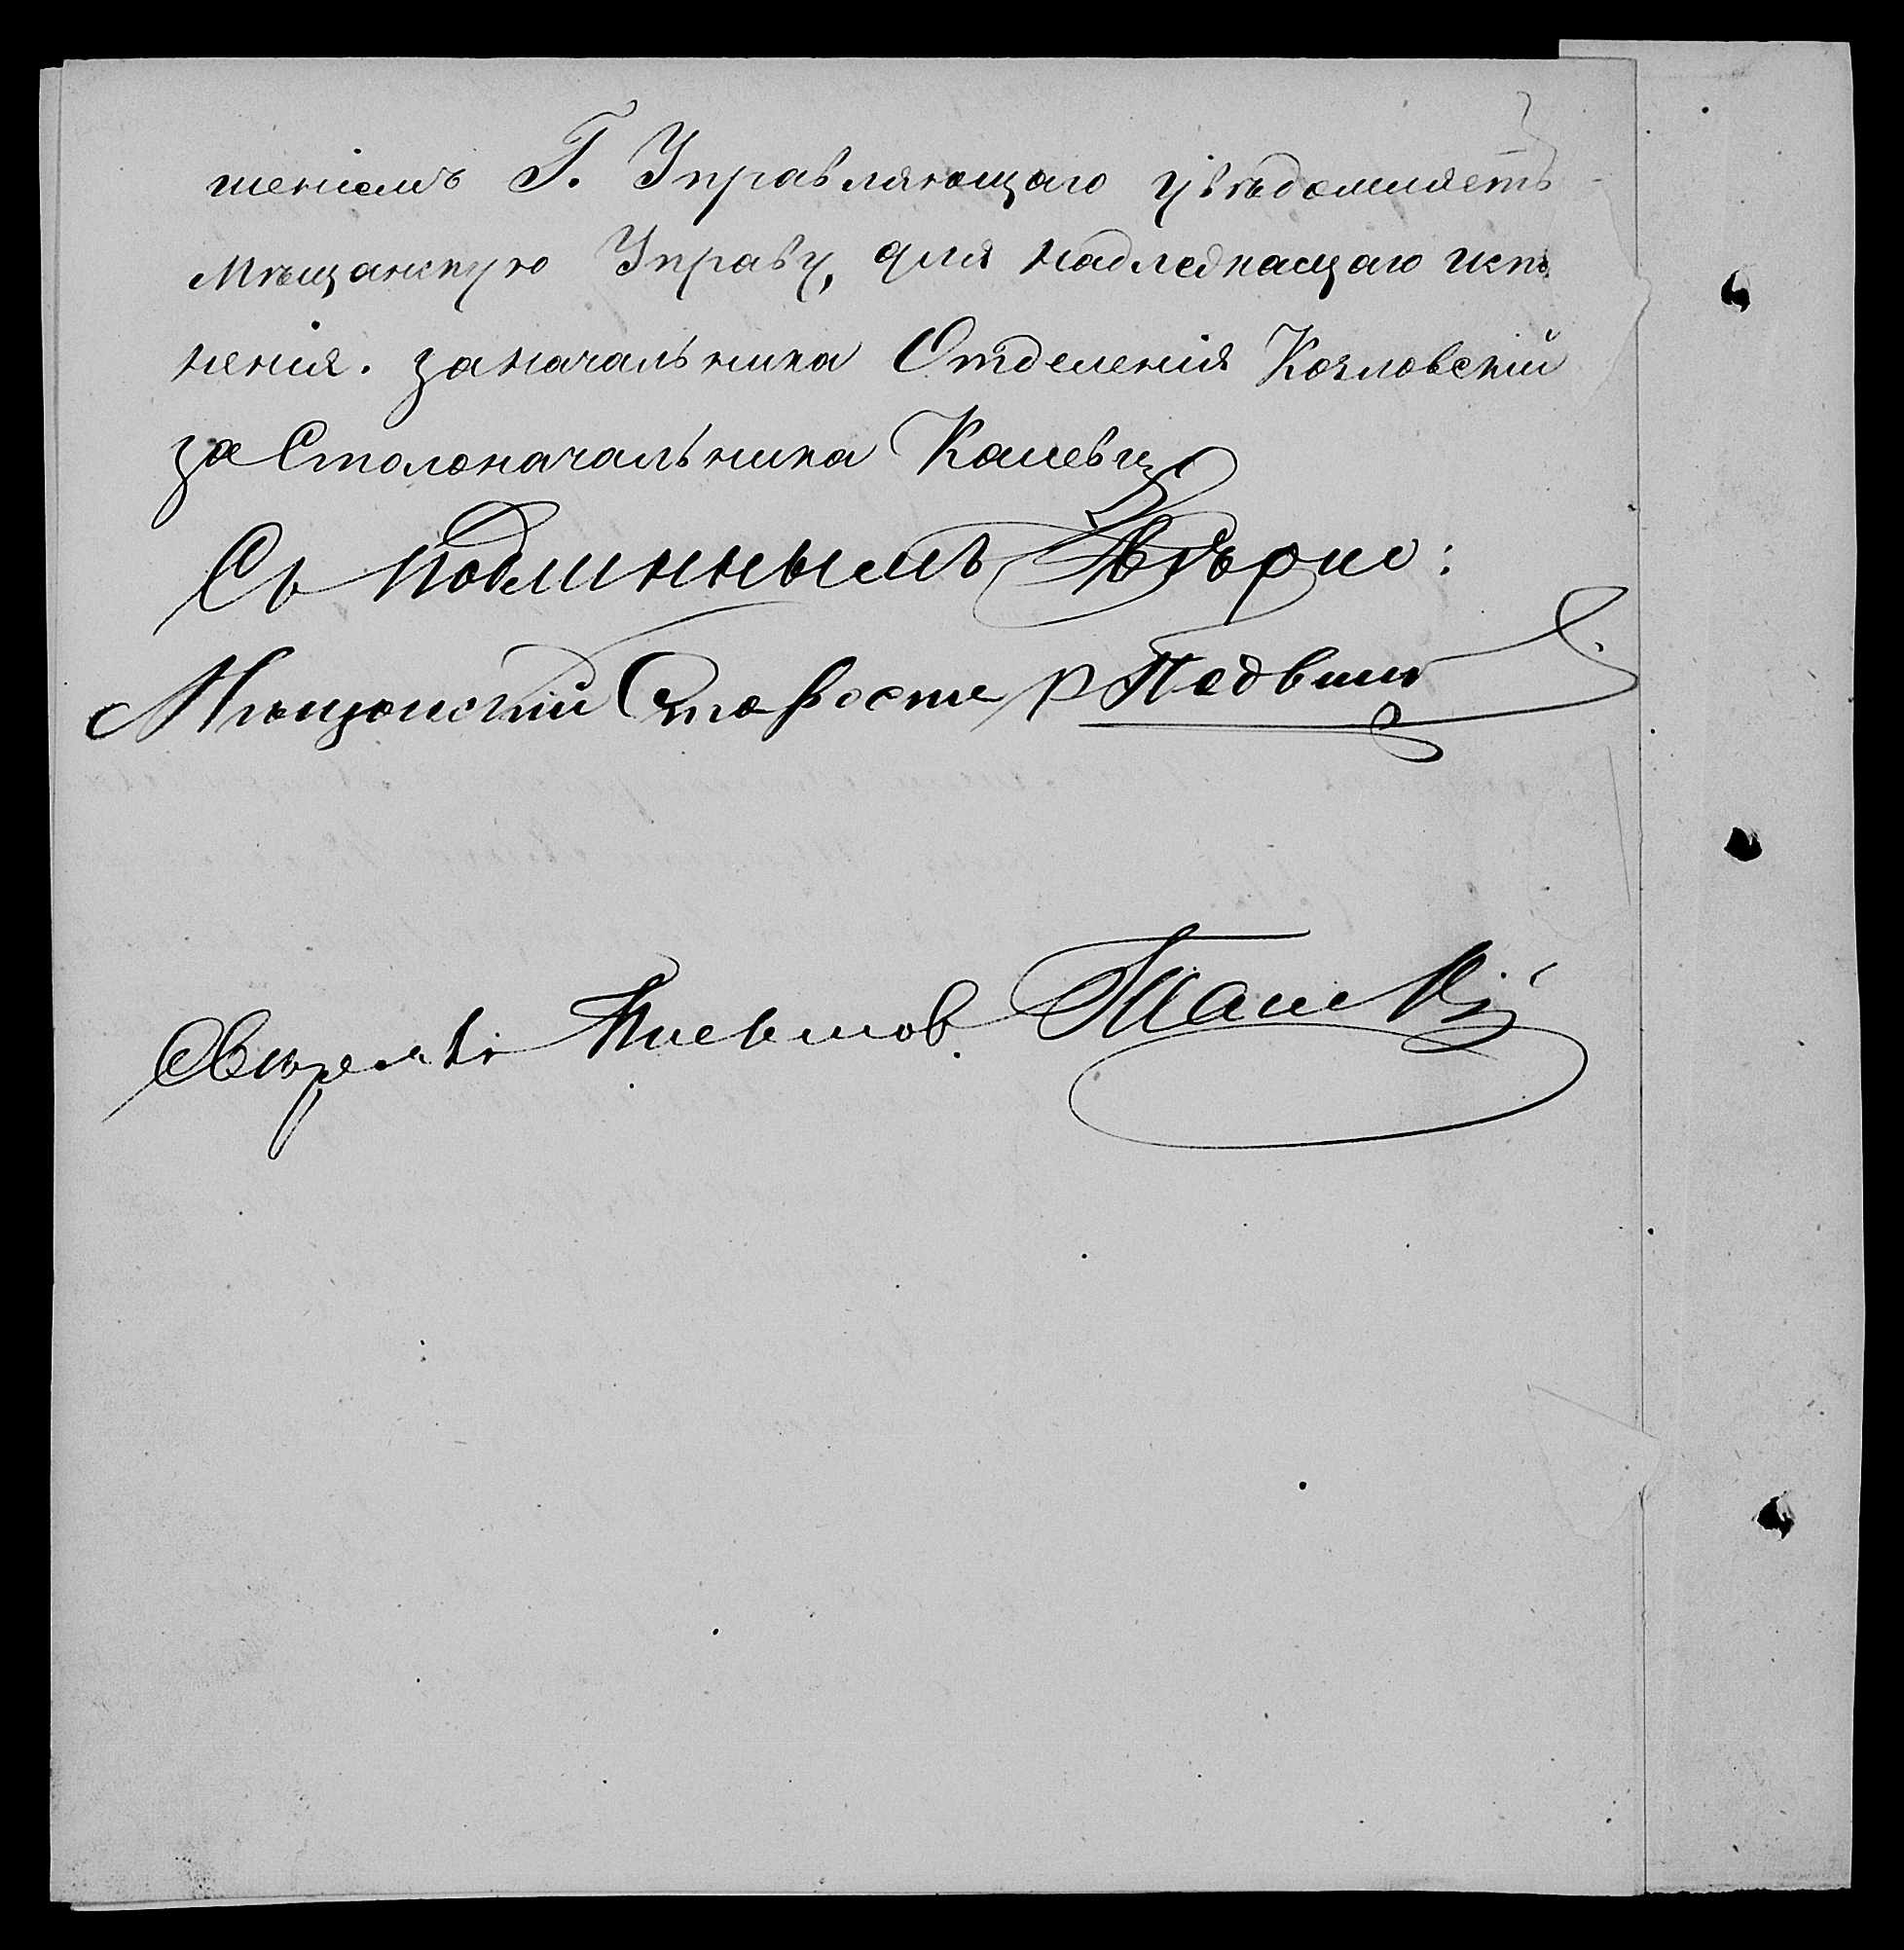 шеніемъ Г. Управляющаго увѣдомляетъ
Мѣщанскую Управу, для надлежащаго исп
ненія. За начальника Отделенія Козловскій
за Столоначальника
Съ подлиннымъ вѣрно:
Мѣщанскій Староста
Свѣрялъ Письмов.